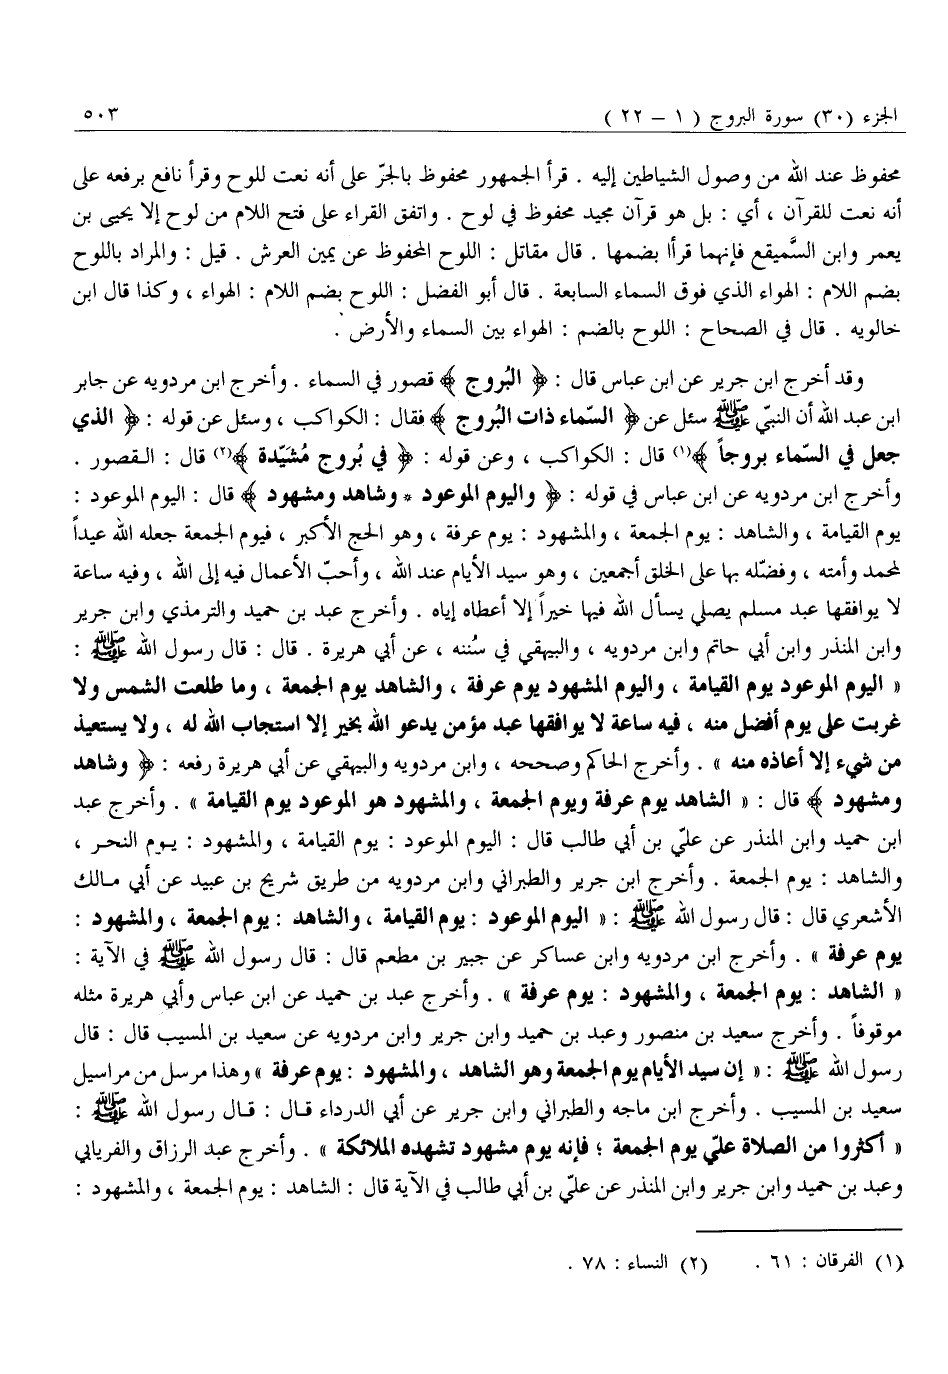 الجزء (٣٠) سورة البروج ( ١ – ٢٢ ) ٥٠٣
محفوظ عند الله من وصول الشياطين إليه . قرأ الجمهور محفوظ بالجرّ على أنه نعت للوح وقرأ نافع برفعه على
أنه نعت للقرآن ، أي : بل هو قرآن مجيد محفوظ في لوح . واتفق القراء على فتح اللام من لوح إلا يحيى بن
يعمر وابن السَّميقع فإنهما قرأا بضمها . قال مقاتل : اللوح المحفوظ عن يمين العرش . قيل : والمراد باللوح
بضم اللام : الهواء الذي فوق السماء السابعة . قال أبو الفضل : اللوح بضم اللام : الهواء ، وكذا قال ابن
خالويه . قال في الصحاح : اللوح بالضم : الهواء بين السماء والأرض .
وقد أخرج ابن جرير عن ابن عباس قال : ﴿ البُروج ﴾ قصور في السماء . وأخرج ابن مردويه عن جابر
ابن عبد الله أن النبيّ ﷺ سئل عن ﴿ السّماء ذات البُروج ﴾ فقال : الكواكب ، وسئل عن قوله : ﴿ الذي
جعل في السّماء بروجاً ﴾(١) قال : الكواكب ، وعن قوله : ﴿ في بُروج مُشيّدة ﴾(٢) قال : القصور .
وأخرج ابن مردويه عن ابن عباس في قوله : ﴿ واليوم الموعود * وشاهد ومشهود ﴾ قال : اليوم الموعود :
يوم القيامة ، والشاهد : يوم الجمعة ، والمشهود : يوم عرفة ، وهو الحج الأكبر ، فيوم الجمعة جعله الله عيداً
لمحمد وأمته ، وفضّله بها على الخلق أجمعين ، وهو سيد الأيام عند الله ، وأحبّ الأعمال فيه إلى الله ، وفيه ساعة
لا يوافقها عبد مسلم يصلي يسأل الله فيها خيراً إلا أعطاه إياه . وأخرج عبد بن حميد والترمذي وابن جرير
وابن المنذر وابن أبي حاتم وابن مردويه ، والبيهقي في سُننه ، عن أبي هريرة . قال : قال رسول الله ﷺ :
« اليوم الموعود يوم القيامة ، واليوم المشهود يوم عرفة ، والشاهد يوم الجمعة ، وما طلعت الشمس ولا
غربت على يوم أفضل منه ، فيه ساعة لا يوافقها عبد مؤمن يدعو الله بخير إلا استجاب الله له ، ولا يستعيذ
من شيء إلا أعاذه منه » . وأخرج الحاكم وصححه ، وابن مردويه والبيهقي عن أبي هريرة رفعه : ﴿ وشاهد
ومشهود ﴾ قال : « الشاهد يوم عرفة ويوم الجمعة ، والمشهود هو الموعود يوم القيامة » . وأخرج عبد
ابن حميد وابن المنذر عن عليّ بن أبي طالب قال : اليوم الموعود : يوم القيامة ، والمشهود : يـوم النحـر ،
والشاهد : يوم الجمعة . وأخرج ابن جرير والطبراني وابن مردويه من طريق شريح بن عبيد عن أبي مـالك
الأشعري قال : قال رسول الله ﷺ : « اليوم الموعود : يوم القيامة ، والشاهد : يوم الجمعة ، والمشهود :
يوم عرفة » . وأخرج ابن مردويه وابن عساكر عن جبير بن مطعم قال : قال رسول الله ﷺ في الآية :
« الشاهد : يوم الجمعة ، والمشهود : يوم عرفة » . وأخرج عبد بن حميد عن ابن عباس وأبي هريرة مثله
موقوفاً . وأخرج سعيد بن منصور وعبد بن حميد وابن جرير وابن مردويه عن سعيد بن المسيب قال : قال
رسول الله ﷺ : « إن سيد الأيام يوم الجمعة وهو الشاهد ، والمشهود : يوم عرفة » وهذا مرسل من مراسيل
سعيد بن المسيب . وأخرج ابن ماجه والطبراني وابن جرير عن أبي الدرداء قـال : قـال رسول الله ﷺ :
« أكثروا من الصلاة عليّ يوم الجمعة ؛ فإنه يوم مشهود تشهده الملائكة » . وأخرج عبد الرزاق والفريابي
وعبد بن حميد وابن جرير وابن المنذر عن عليّ بن أبي طالب في الآية قال : الشاهد : يوم الجمعة ، والمشهود :
(١) الفرقان : ٦١ . (٢) النساء : ٧٨ .